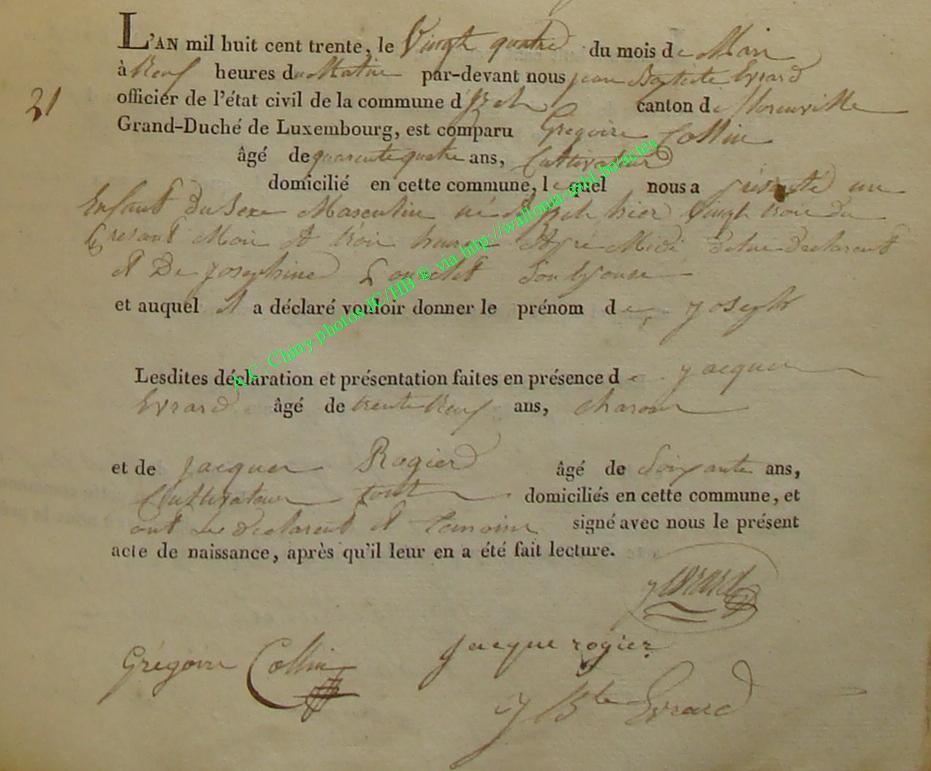 L'AN mil huit cent trente, le Vingt quatre du mois de Mars
à Neuf heures du Matin par-devant nous jean Baptiste Evrard
21
officier de l'état civil de la commune d'Izel canton de florenville
Grand-Duché de Luxembourg, est comparu Gregoire Collin
âgé de quarente quatre ans, Cultivateur
domicilié en cette commune, lequel nous a présenté un
Enfant Du Sexe Masculin né à Izel hier Vingt trois du
present Mois à trois heures Après Midi de lui declarent
et De josephine son Epouse
et auquel il a déclaré vouloir donner le prénom de joseph
Lesdites déclaration et présentation faites en présence de jacques
Evrard âgé de trente Neuf ans, charon
et de jacques Rogier âgé de Soixante ans,
Cultivateur tout domiciliés en cette commune, et
ont le declarent et temoins signé avec nous le présent
acte de naissance, après qu'il leur en a été fait lecture.
j evrard
Grégoire Collin jacque rogier
j Bte Evrard
A.C. Chiny photos JC/HB ® via http://wallonia-gahl.be/actes